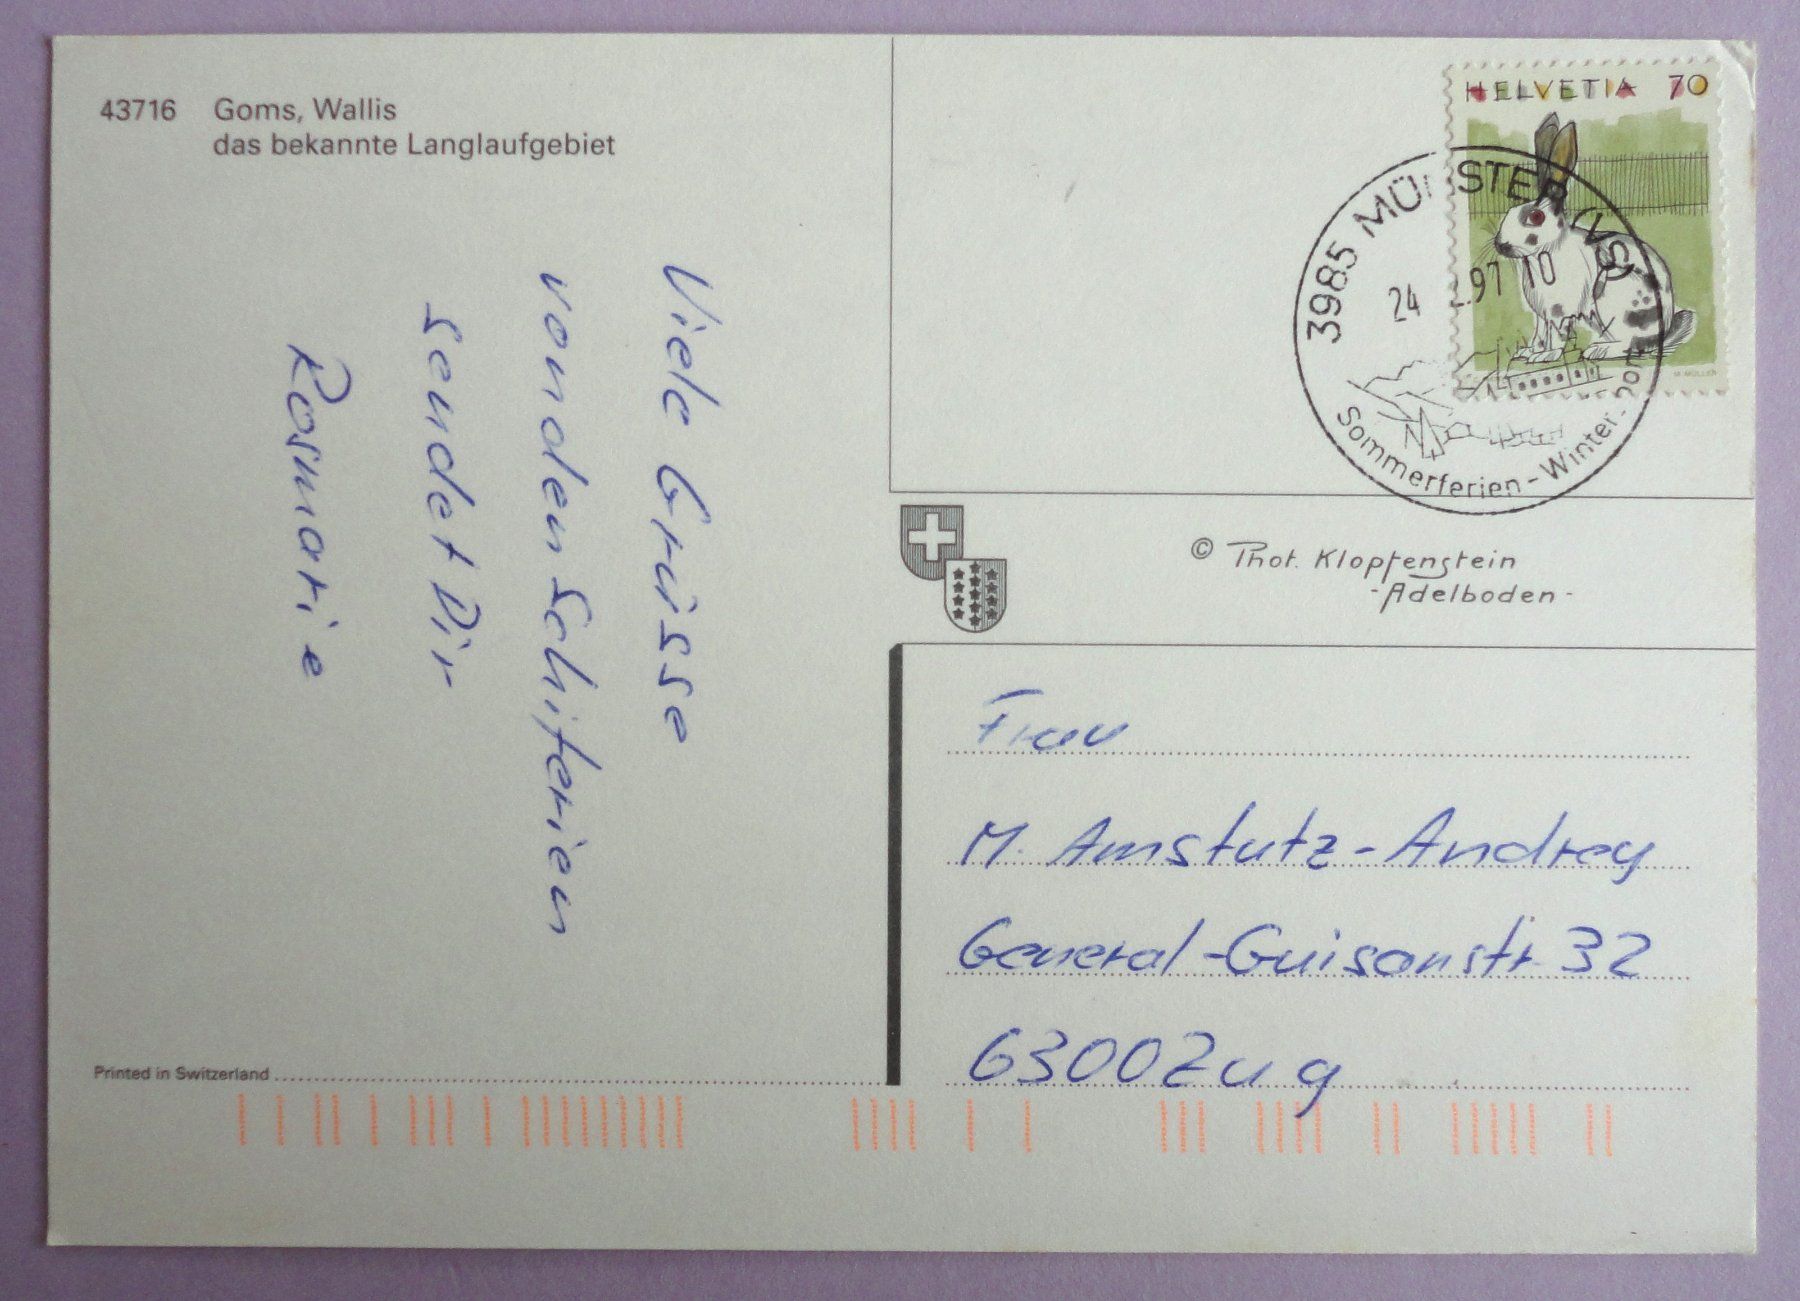 43716 Goms, Wallis
das bekannte Langlaufgebiet
Viele Grüsse
von den Schiferien
sendet Dir
Rosmarie
Printed in Switzerland
HELVETIA 70
M. MÜLLER
3985 MÜNSTER (VS)
24 97 10
Sommerferien - Winter
© Phot. Klopfenstein
- Adelboden -
Frau
M. Amstutz-Andrey
General-Guisanstr. 32
6300 Zug